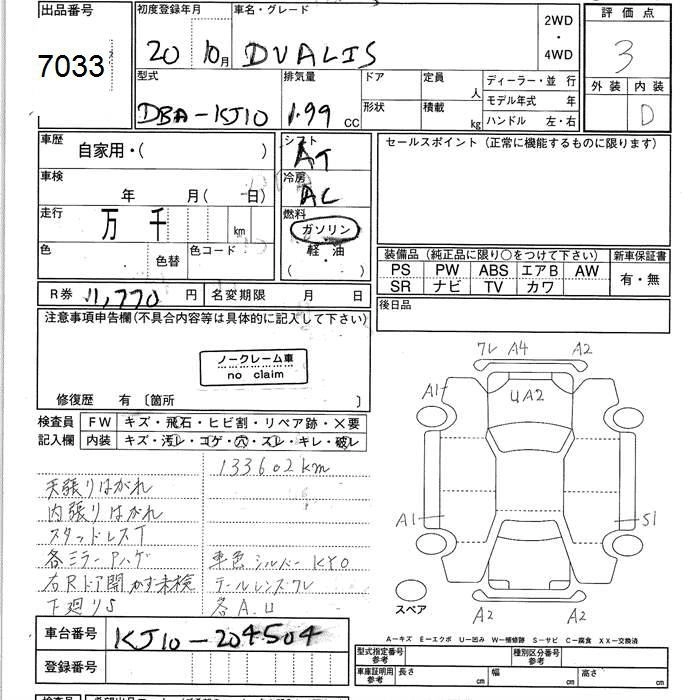 出品番号
7033
初度登録年月 20 10月
車名・グレード DUALIS
2WD・4WD
評価点 3
外装 内装 D
型式 DBA-KJ10
排気量 1.99 CC
ドア 形状
定員 人
積載 kg
ディーラー・並行
モデル年式 年
ハンドル 左・右
車歴 自家用・( )
シフト AT
セールスポイント (正常に機能するものに限ります)
車検 年 月( 日)
冷房 AC
走行 万 千 km
燃料 ガソリン
軽・油
( )
色 色替 色コード
装備品 (純正品に限り○をつけて下さい) 新車保証書
PS PW ABS エアB AW 有・無
SR ナビ TV カワ
R券 11,770 円 名変期限 月 日
後日品
注意事項申告欄(不具合内容等は具体的に記入して下さい)
ノークレーム車
no claim
修復歴 有 〔箇所 〕
検査員 FW キズ・飛石・ヒビ割・リペア跡・×要
記入欄 内装 キズ・汚レ・コゲ・穴・スレ・キレ・破レ
133602km
天張りはがれ
内張りはがれ
スタッドレスT
各ミラーAハゲ 車色シルバー KY0
右Rドア開かず未検 テールレンズワレ
下廻りS 各A.U
ワレ A4 A2
A1 UA2
A1 S1
A2 A2
スペア
A−キズ E−エクボ U−凹み W−補修跡 S−サビ C−腐食 XX−交換済
車台番号 KJ10-204504
登録番号
型式指定番号 参考 種別区分番号 参考
車庫証明用 参考 長さ cm 幅 cm 高さ cm